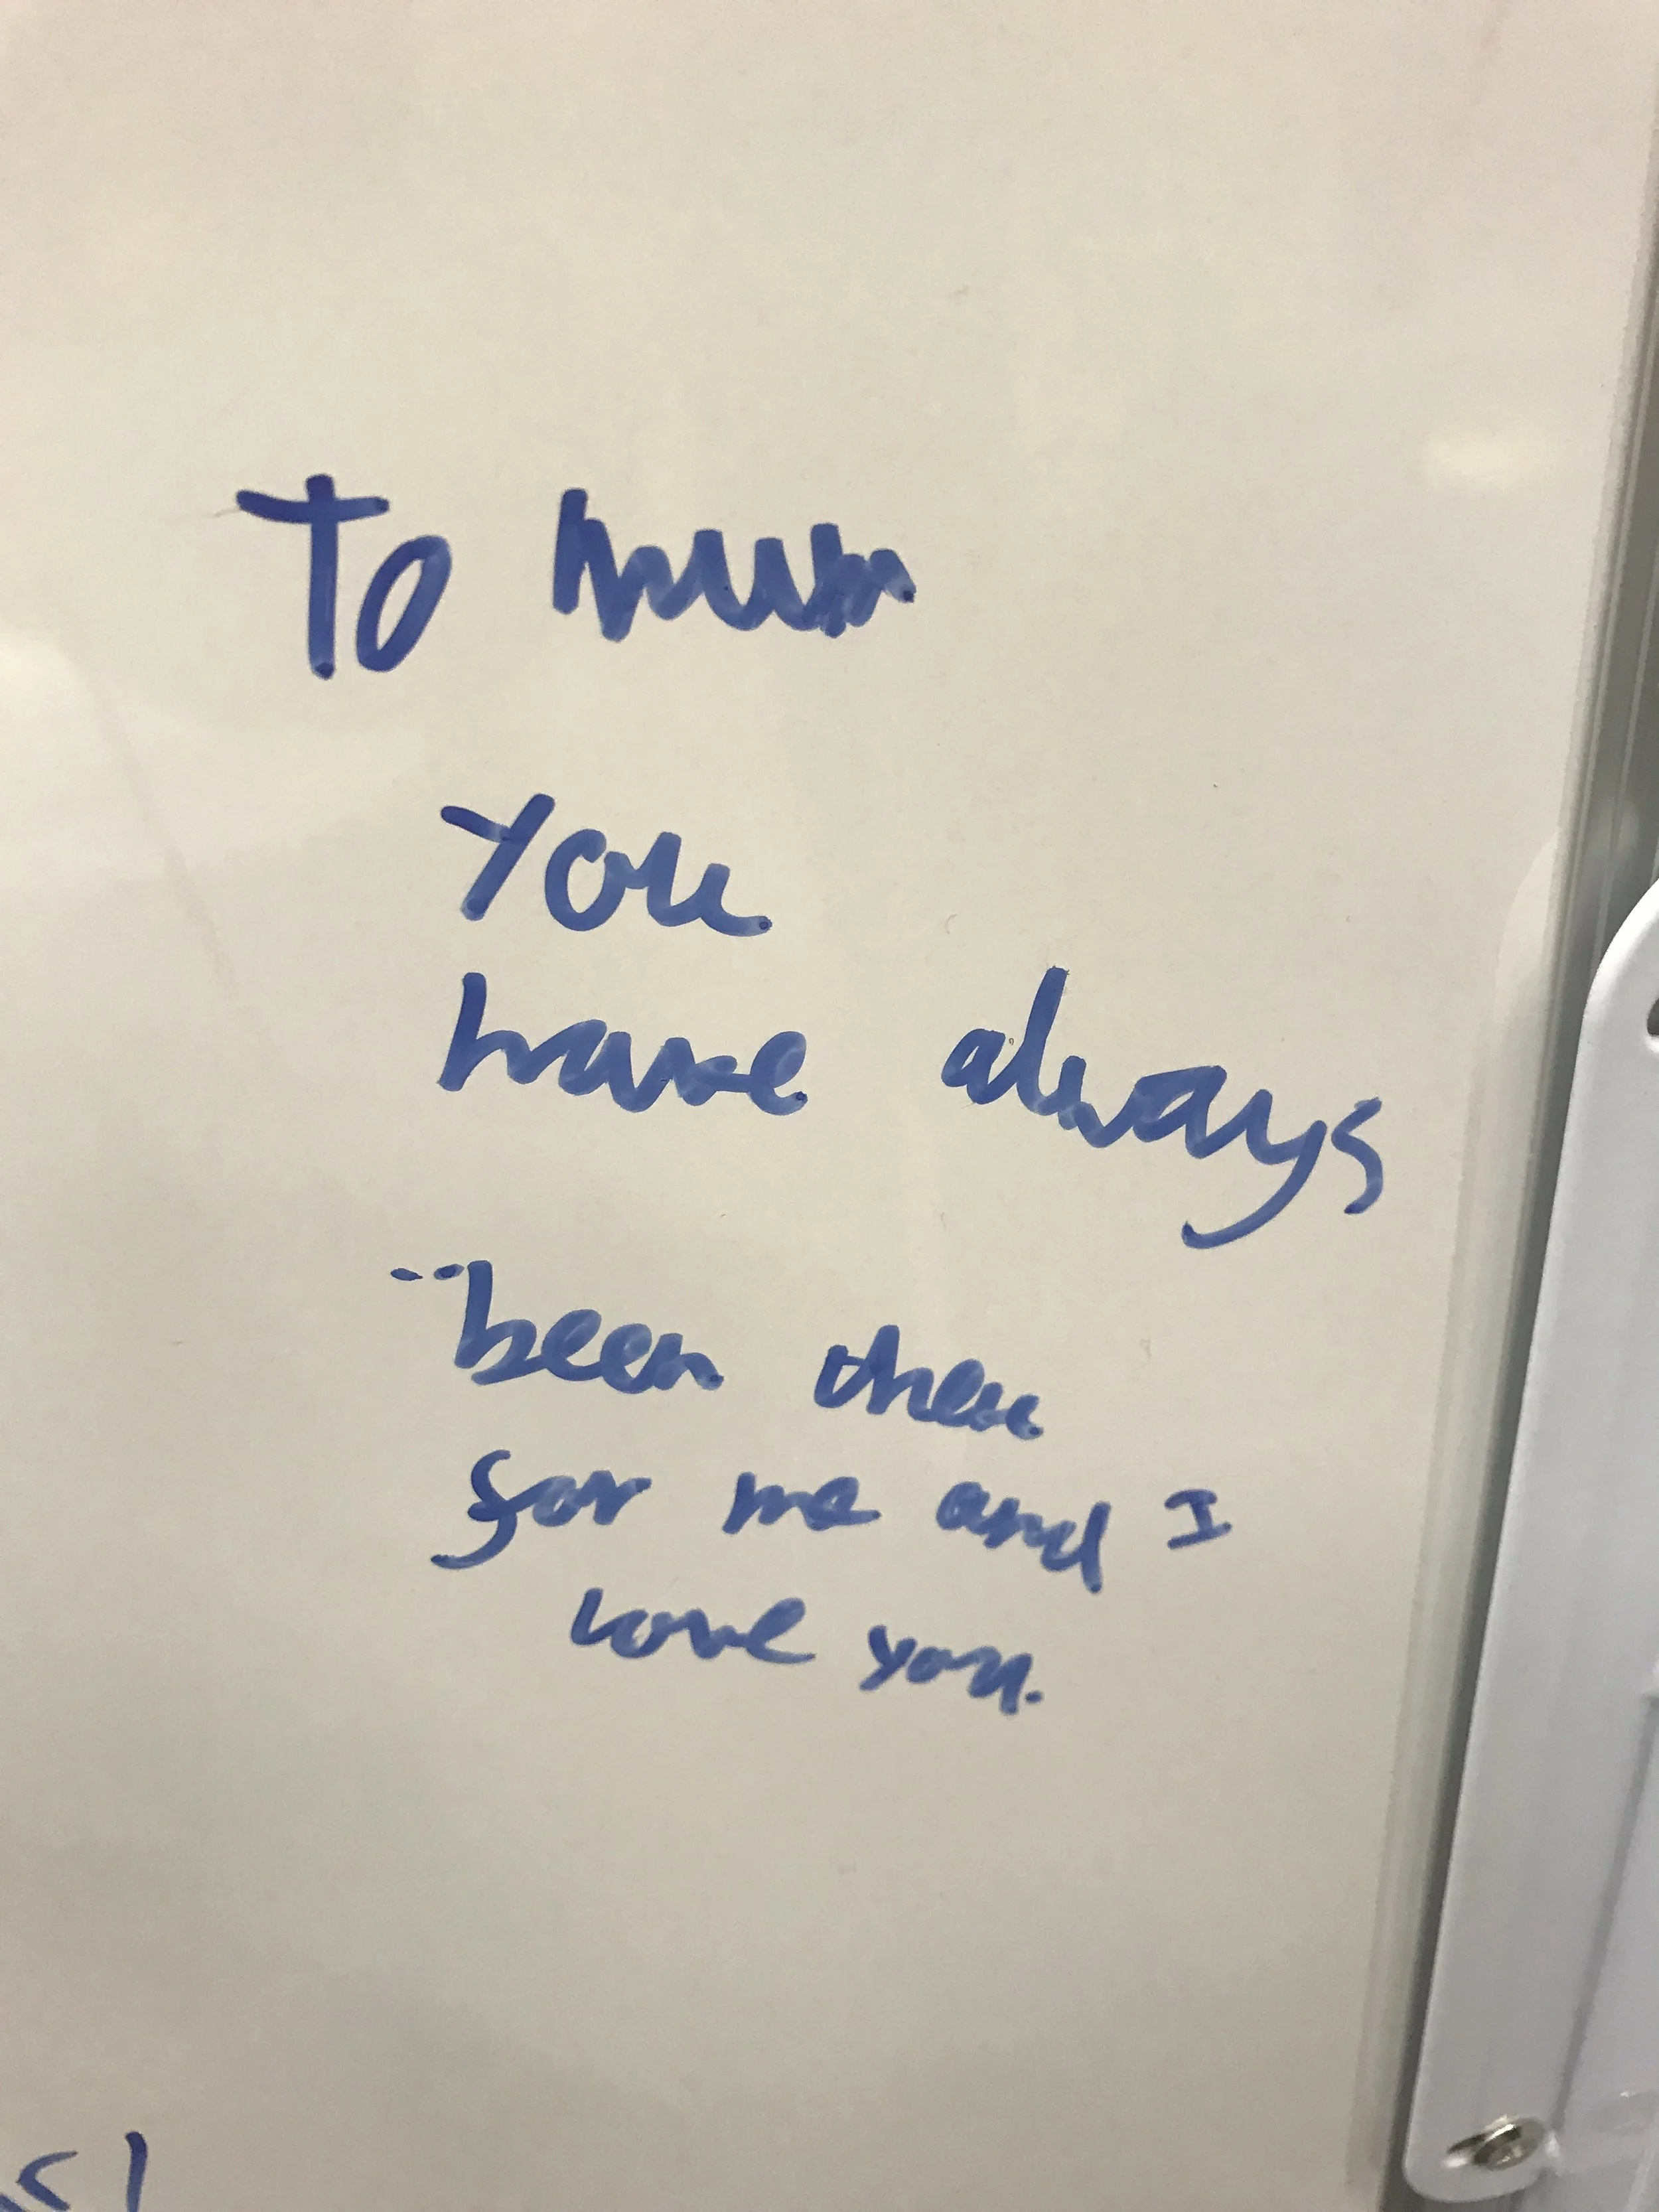 To mum
You
have always
--been there
for me and I
love you.